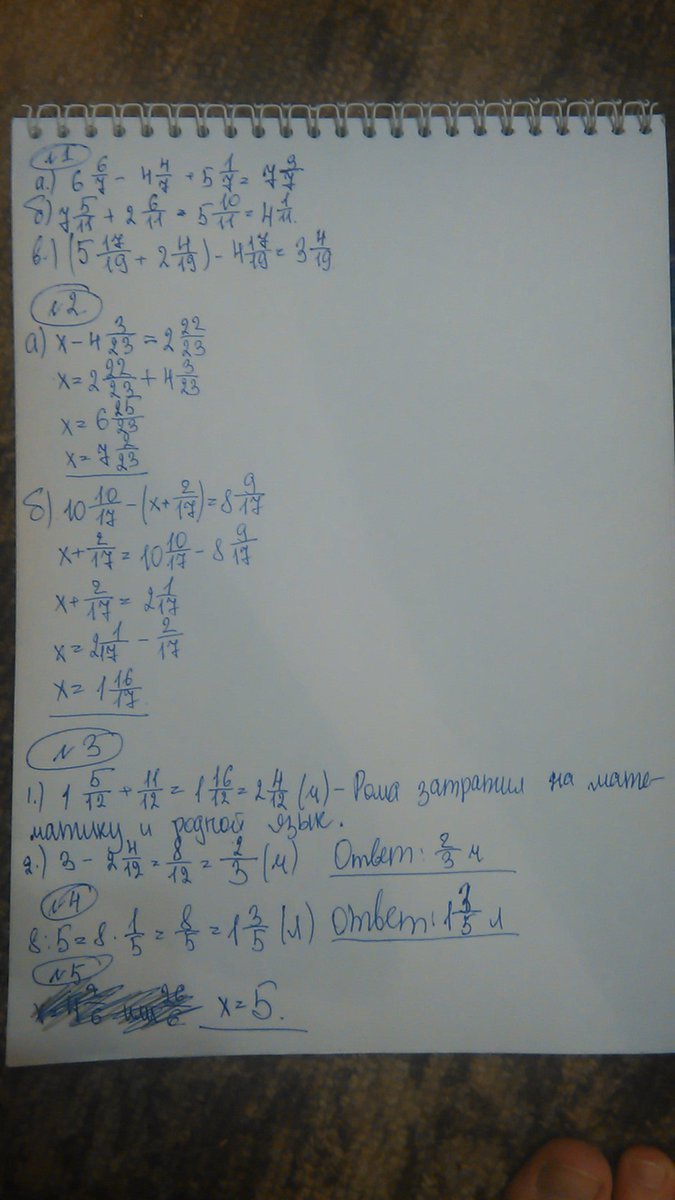 №1
а.) 6 6/7 - 4 4/7 + 5 1/7 = 7 3/7
б) 7 5/11 + 2 6/11 = 5 10/11 = 4 1/11.
в.) (5 17/19 + 2 4/19) - 4 17/19 = 3 4/19
№2
а) x - 4 3/23 = 2 22/23
x = 2 22/23 + 4 3/23
x = 6 25/23
x = 7 2/23
б) 10 10/17 - (x + 2/17) = 8 9/17
x + 2/17 = 10 10/17 - 8 9/17
x + 2/17 = 2 1/17
x = 2 1/17 - 2/17
x = 1 16/17
№3
1.) 1 5/12 + 11/12 = 1 16/12 = 2 4/12 (ч) - Рома затратил на мате-
матику и родной язык.
2.) 3 - 2 4/12 = 8/12 = 2/3 (ч) Ответ: 2/3 ч
№4
8 : 5 = 8 · 1/5 = 8/5 = 1 3/5 (л) Ответ: 1 3/5 л
№5
x = 5.